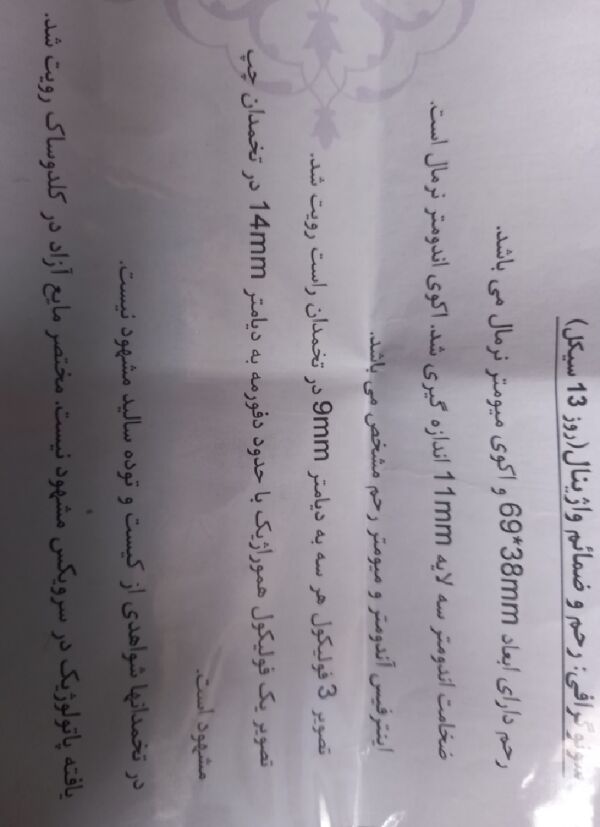 سونوگرافی: رحم و ضمائم واژینال(روز 13 سیکل)
رحم دارای ابعاد 38mm*69 و اکوی میومتر نرمال می باشد.
ضخامت اندومتر سه لایه 11mm اندازه گیری شد. اکوی اندومتر نرمال است.
اینترفیس آندومتر و میومتر رحم مشخص می باشد.
تصویر 3 فولیکول هر سه به دیامتر 9mm در تخمدان راست رویت شد.
تصویر یک فولیکول هموراژیک با حدود دفورمه به دیامتر 14mm در تخمدان چپ
مشهود است.
در تخمدانها شواهدی از کیست و توده سالید مشهود نیست.
یافته پاتولوژیک در سرویکس مشهود نیست. مختصر مایع آزاد در کلدوساک رویت شد.